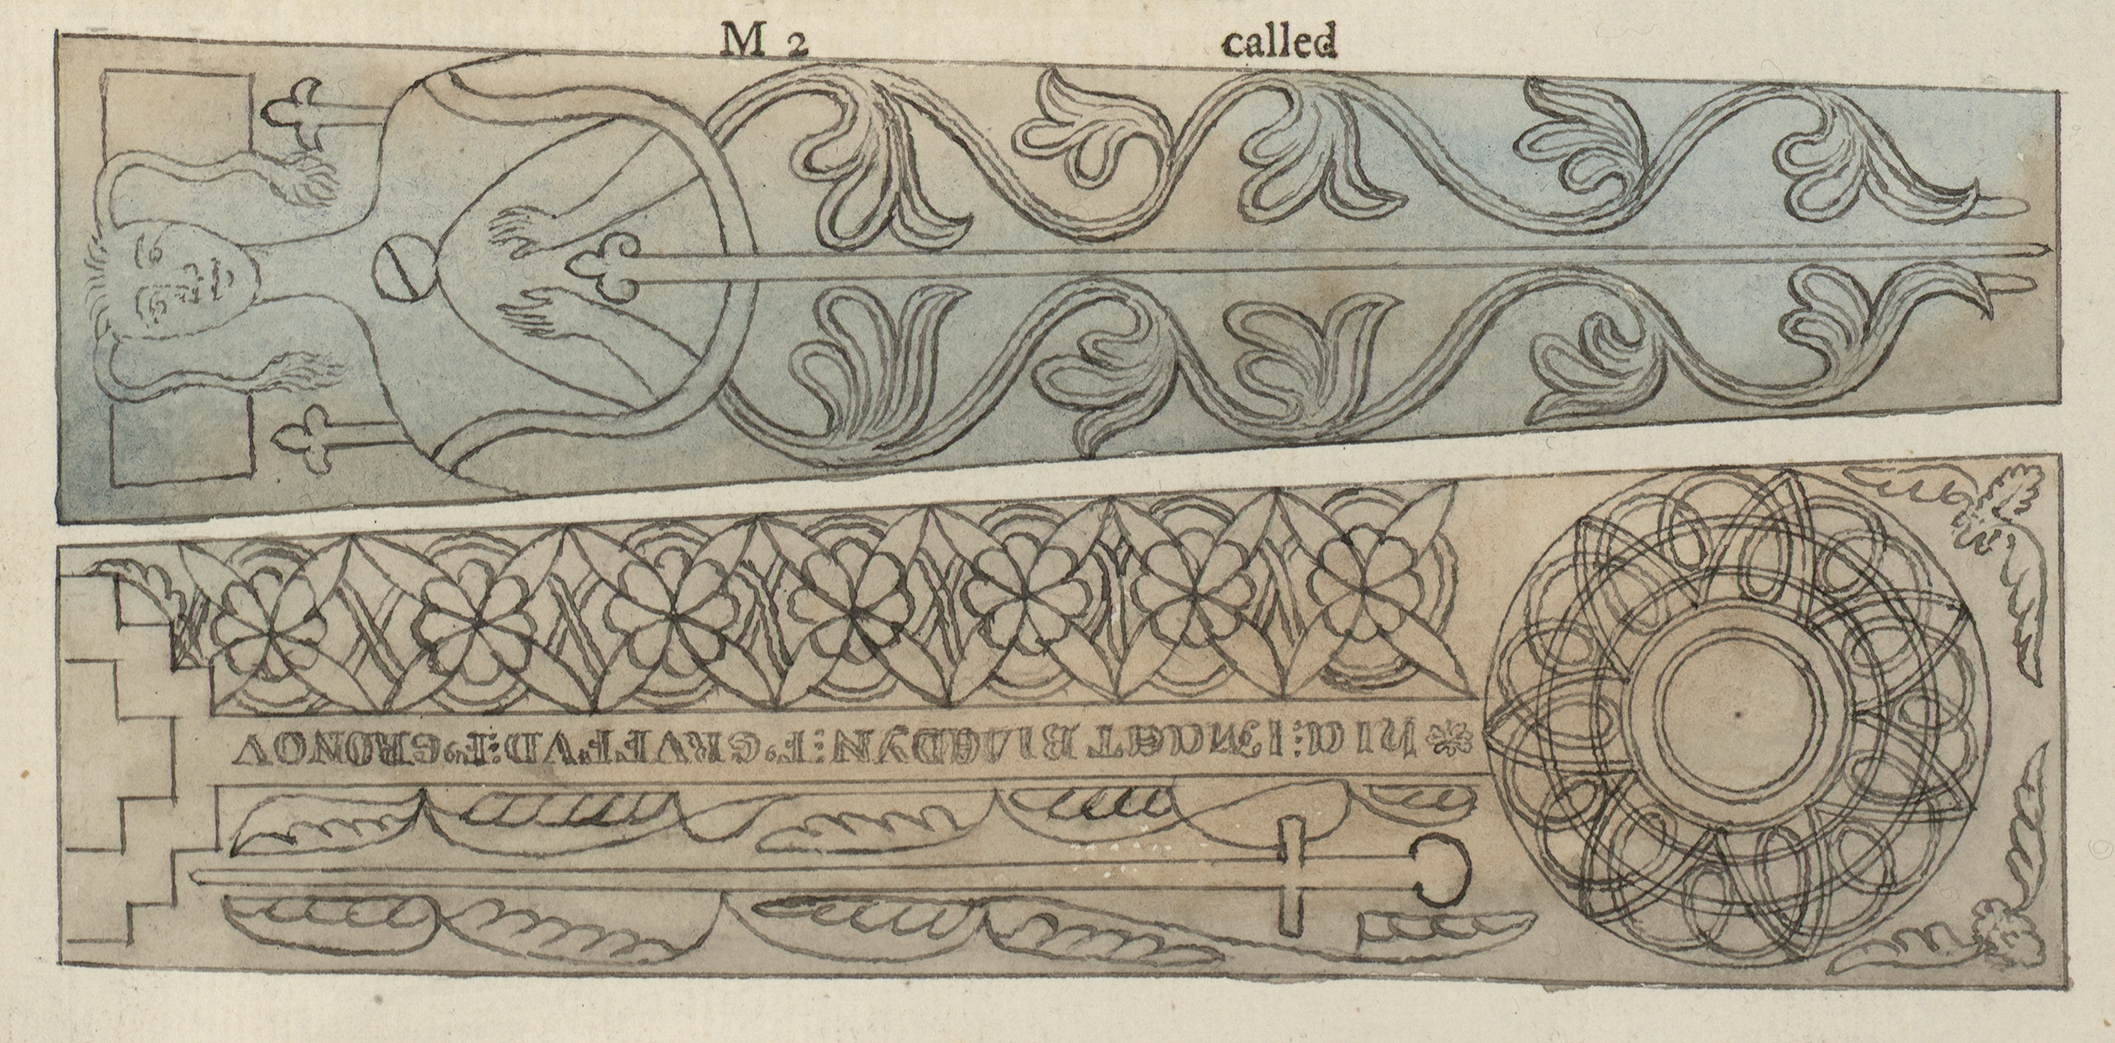 M 2 called
HIC : IACET BLEDYN : F' GRVFFVD : F' GRONOV